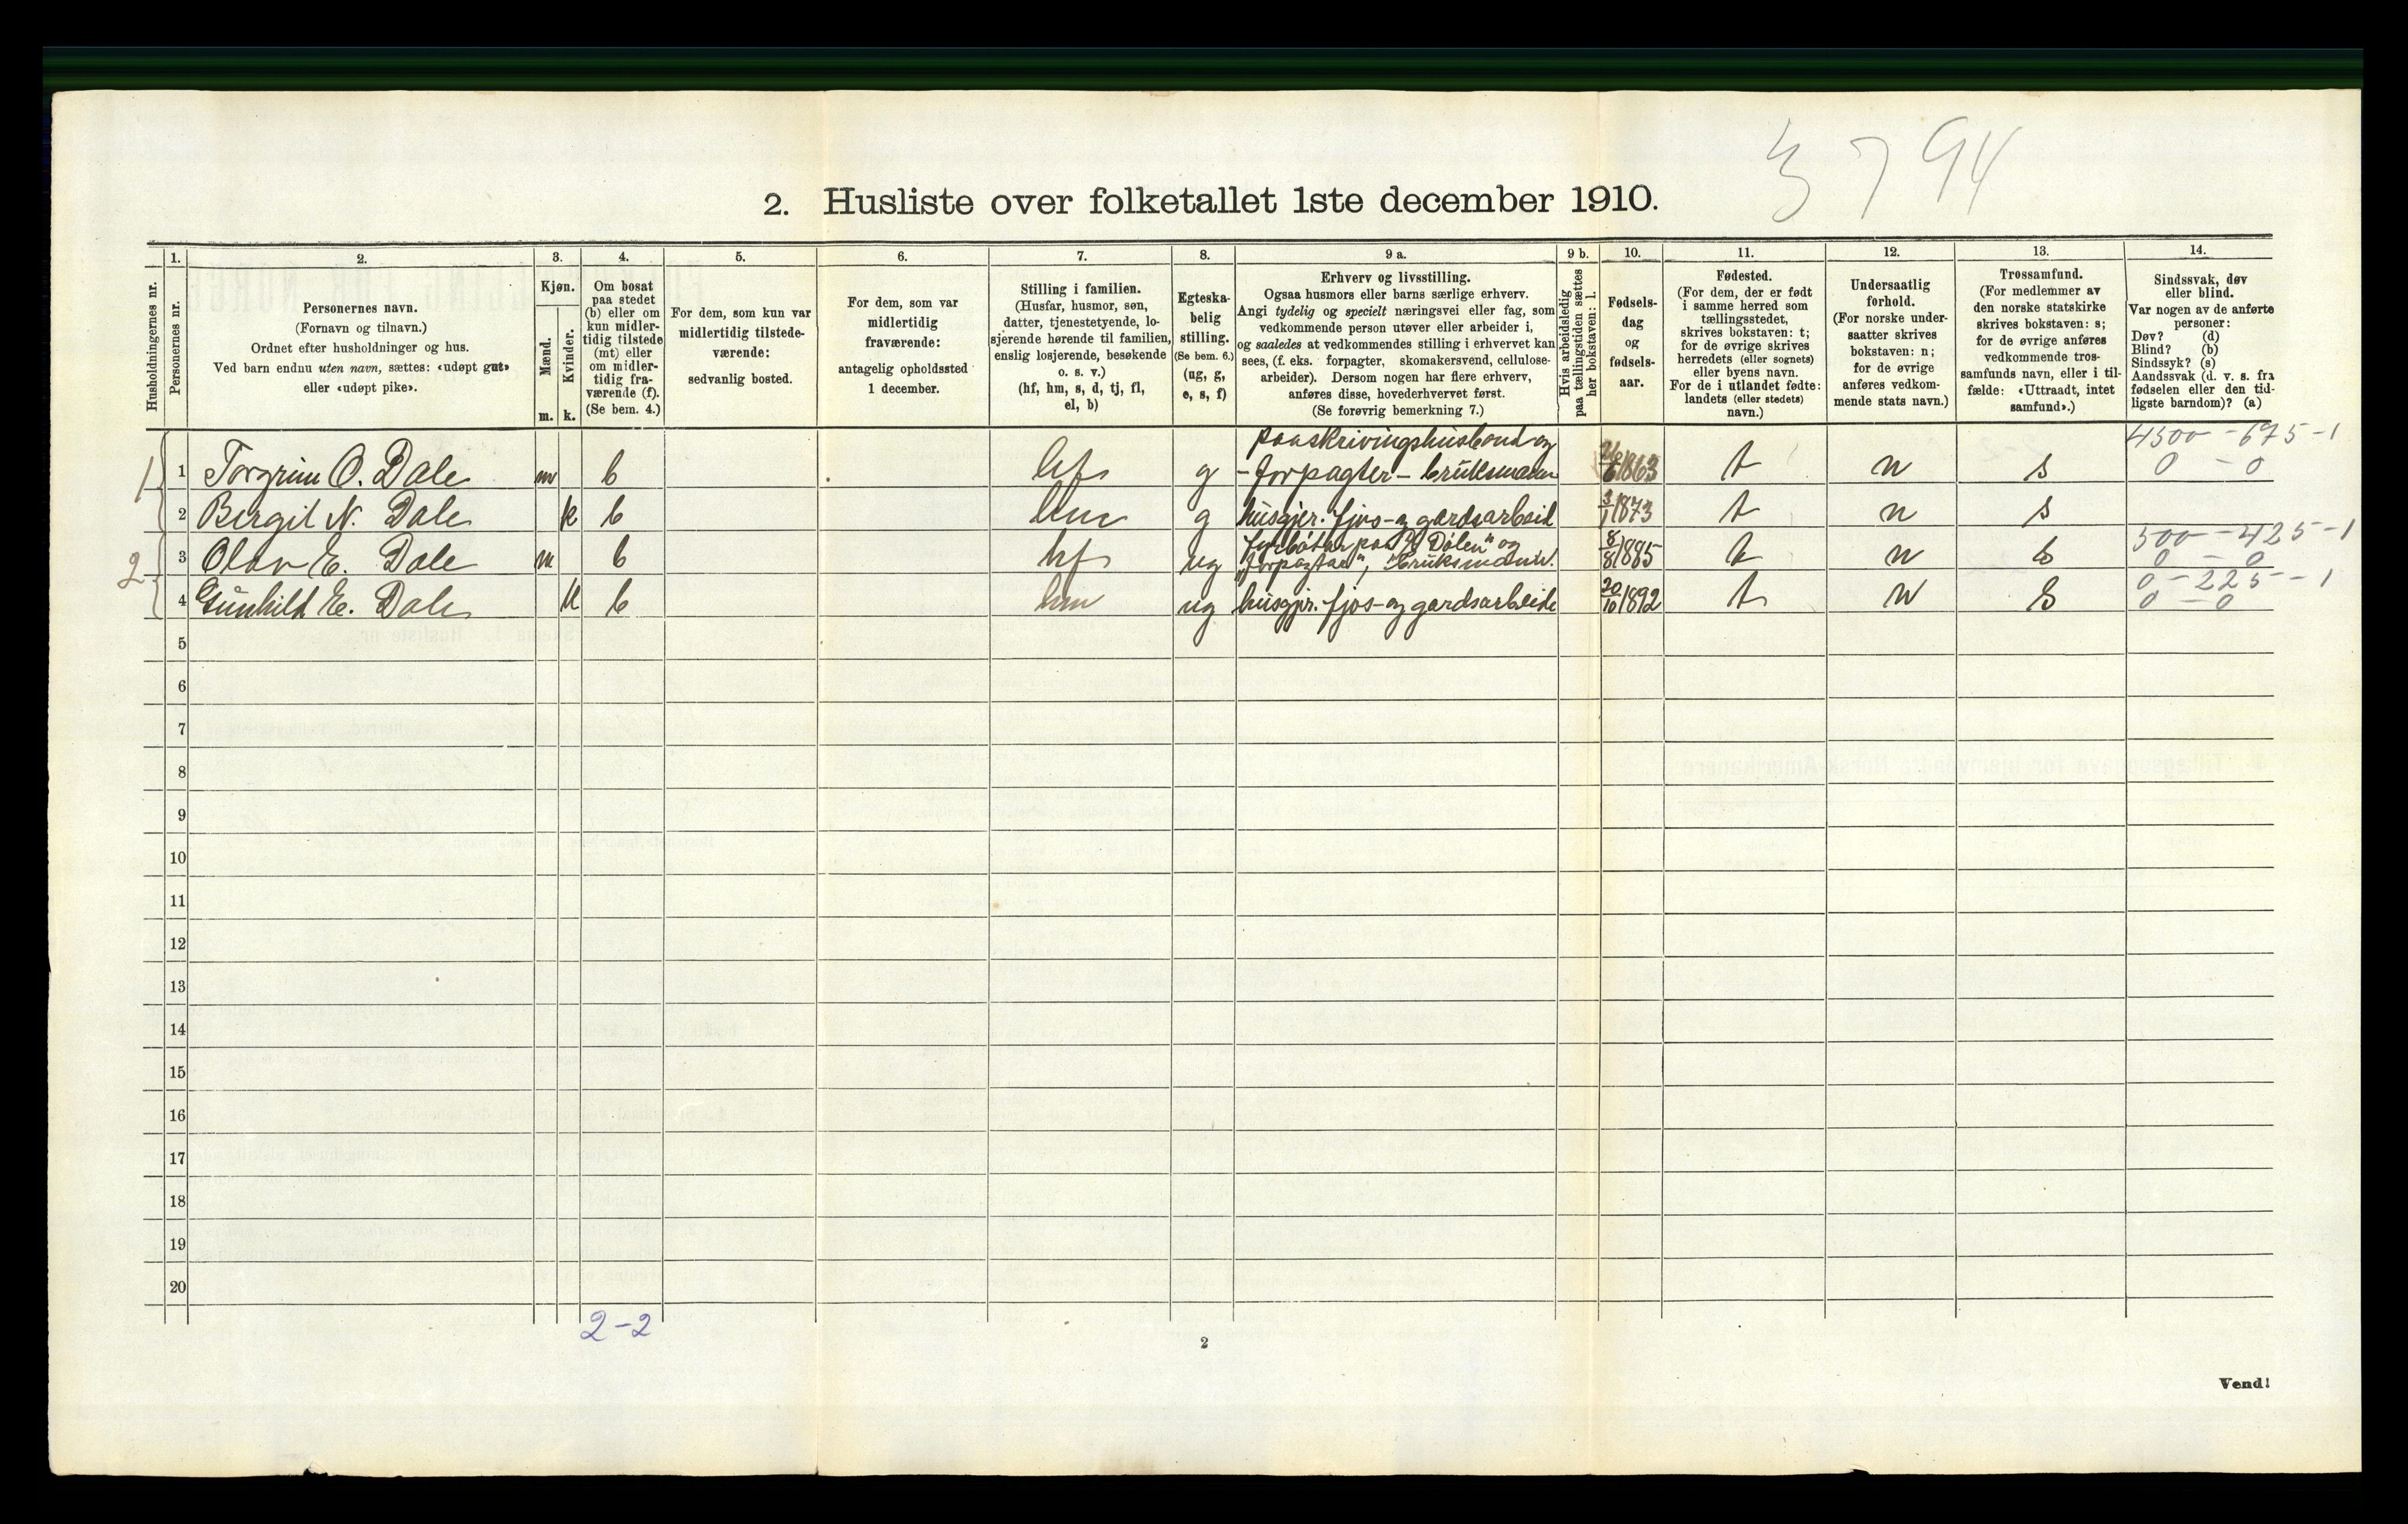 3 7 94
2. Husliste over folketallet 1ste december 1910.
Husholdningernes nr.
1.
Personernes nr.
2.
Personernes navn.
(Fornavn og tilnavn.)
Ordnet efter husholdninger og hus.
Ved barn endnu uten navn, sættes: «udøpt gut»
eller «udøpt pike».
3.
Kjøn.
Mænd.
Kvinder.
m. k.
4.
Om bosat
paa stedet
(b) eller om
kun midler-
tidig tilstede
(mt) eller
om midler-
tidig fra-
værende (f).
(Se bem. 4.)
5.
For dem, som kun var
midlertidig tilstede-
værende:
sedvanlig bosted.
6.
For dem, som var
midlertidig
fraværende:
antagelig opholdssted
1 december.
7.
Stilling i familien.
(Husfar, husmor, søn,
datter, tjenestetyende, lo-
sjerende hørende til familien,
enslig losjerende, besøkende
o. s. v.)
(hf, hm, s, d, tj, fl,
el, b)
8.
Egteska-
belig
stilling.
(Se bem. 6.)
(ug, g,
e, s, f)
9 a.
Erhverv og livsstilling.
Ogsaa husmors eller barns særlige erhverv.
Angi tydelig og specielt næringsvei eller fag, som
vedkommende person utøver eller arbeider i,
og saaledes at vedkommendes stilling i erhvervet kan
sees, (f. eks. forpagter, skomakersvend, cellulose-
arbeider). Dersom nogen har flere erhverv,
anføres disse, hovederhvervet først.
(Se forøvrig bemerkning 7.)
9 b.
Hvis arbeidsledig
paa tællingstiden sættes
her bokstaven: l.
10.
Fødsels-
dag
og
fødsels-
aar.
11.
Fødested.
(For dem, der er født
i samme herred som
tællingsstedet,
skrives bokstaven: t;
for de øvrige skrives
herredets (eller sognets)
eller byens navn.
For de i utlandet fødte:
landets (eller stedets)
navn.)
12.
Undersaatlig
forhold.
(For norske under-
saatter skrives
bokstaven: n;
for de øvrige
anføres vedkom-
mende stats navn.)
13.
Trossamfund.
(For medlemmer av
den norske statskirke
skrives bokstaven: s;
for de øvrige anføres
vedkommende tros-
samfunds navn, eller i til-
fælde: «Uttraadt, intet
samfund».)
14.
Sindssvak, døv
eller blind.
Var nogen av de anførte
personer:
Døv? (d)
Blind? (b)
Sindssyk? (s)
Aandssvak (d. v. s. fra
fødselen eller den tid-
ligste barndom)? (a)
paaskrivingshusbond og 4500 - 675 - 1
1 1 Torgrim O. Dale m b hf g - forpagter - bruksmann 26/6 1863 t n s 0 - 0
2 Birgit N. Dale k b hm g husgjer. fjos- og gardsarbeid 3/1 1873 t n s
fyrbøtar paa "Dølen" og 500 - 425 - 1
2 3 Olav E. Dale m b hf ug "forpagtar", bruksmann. 8/8 1885 t n s 0 - 0
0 - 225 - 1
4 Gunhild E. Dale k b hm ug husgjer. fjos- og gardsarbeide 20/10 1892 t n s 0 - 0
5
6
7
8
9
10
11
12
13
14
15
16
17
18
19
20
2-2
2
Vend!